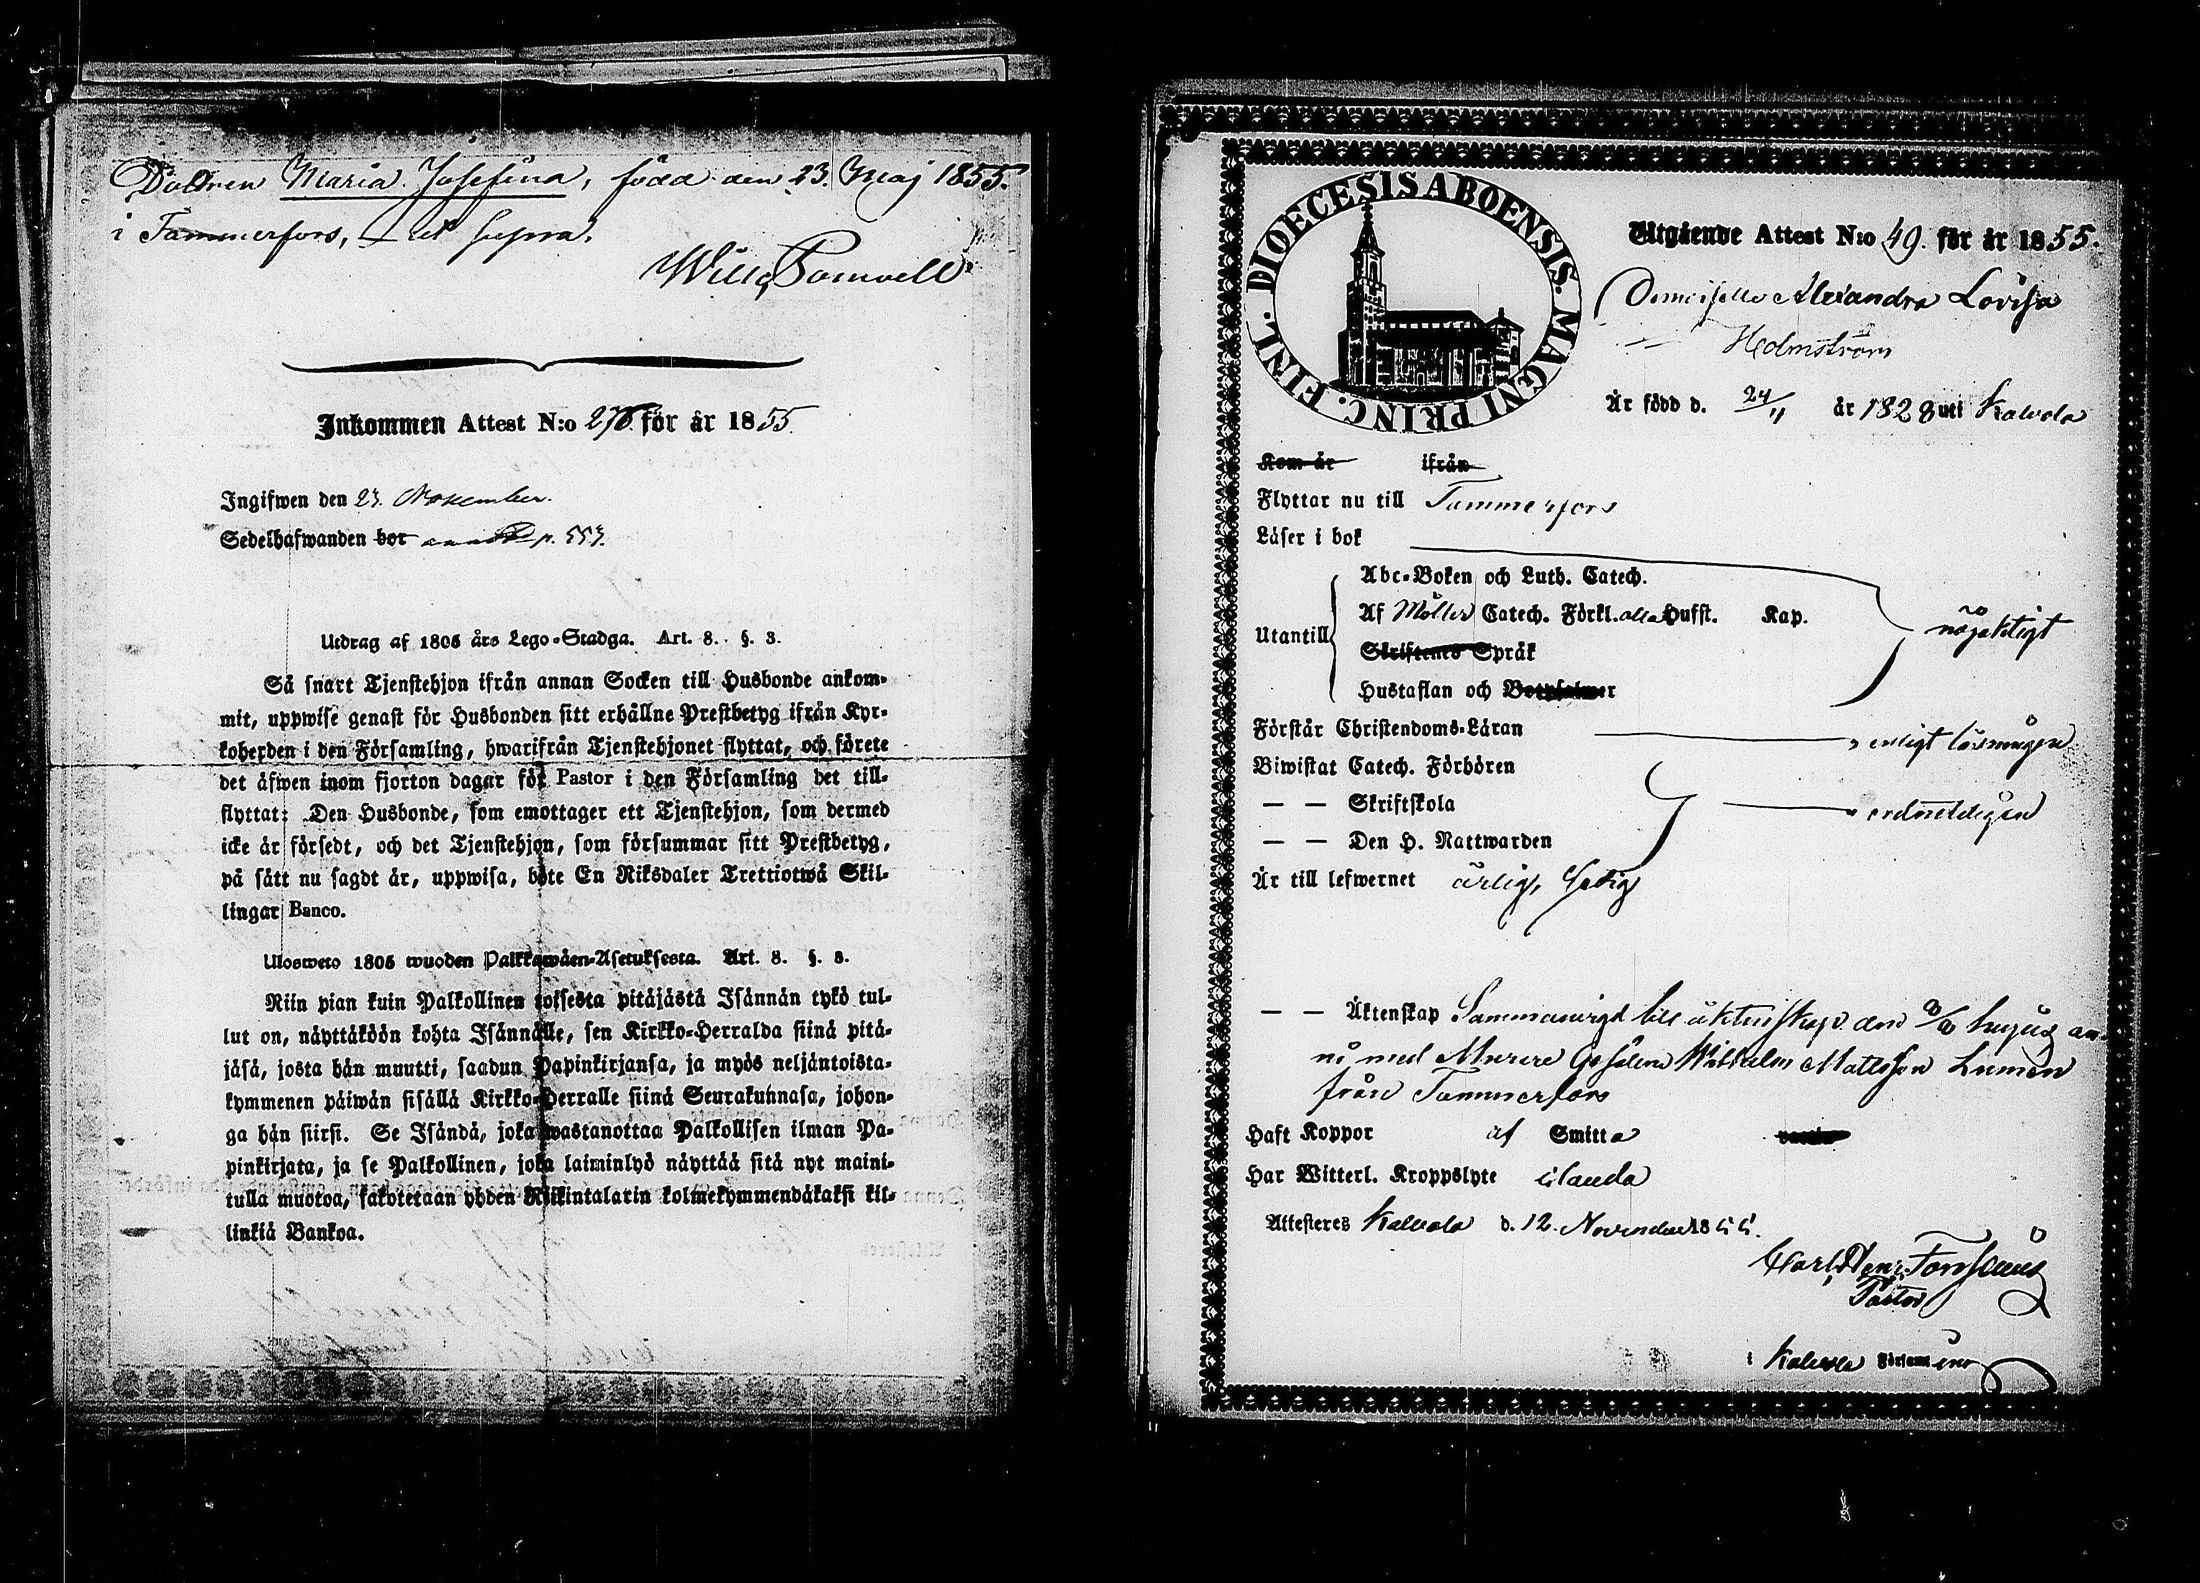 Dottren Maria Josefina, född den 23. Maj 1855.
i Tammerfors, ut supra.
Inkommen Attest N:o 276 för år 1855.
Ingifwen den 23. November.
Sedelhafwanden bor p. 553.
Utdrag af 1805 års Lego-Stadga. Art. 8. §. 3.
Så snart Tjenstehjon ifrån annan Socken till Husbonde ankom-
mit, uppwise genast för Husbonden sitt erhållne Prestbetyg ifrån Kyr-
koherden i den Församling, hwarifrån Tjenstehjonet flyttat, och förete
det äfwen inom fjorton dagar för Pastor i den Församling det till-
flyttat: Den Husbonde, som emottager ett Tjenstehjon, som dermed
icke är försedt, och det Tjenstehjon, som försummar sitt Prestbetyg,
på sätt nu sagdt är, uppwisa, böte En Riksdaler Trettiotwå Skil-
lingar Banco.
Ulosweto 1805 wuoden Palkkawäen-Asetuksesta. Art. 8. §. 3.
Niin pian kuin Palkollinen toisesta pitäjästä Isännän tykö tul-
lut on, näyttäköön kohta Isännälle, sen Kirkko-Herralda siinä pitä-
jäsä, josta hän muutti, saadun Papinkirjansa, ja myös neljäntoista-
kymmenen päiwän sisällä Kirkko-Herralle siinä Seurakuhnasa, johon-
ga hän siirsi. Se Isändä, joka wastanottaa Palkollisen ilman Pa-
pinkirjata, ja se Palkollinen, joka laiminlyö näyttää sitä nyt maini-
tulla muotoa, sakotetaan yhden Riikintalarin kolmekymmendäkaksi kil-
linkiä Bankoa.
DIOECESIS ABOENSIS. MAGNI PRINC. FINL.
Utgående Attest N:o 49. för år 1855.
Demoiselle Alexandra Lovisa
Holmström
Är född d. 24/11 år 1828 uti Kalvola
Kom år ifrån
Flyttar nu till Tammerfors
Läser i bok
Abc-Boken och Luth. Catech.
Utantill
Af Möller Catech. Förkl. alla Hufst. Kap.
nöjaktigt
Skriftenes Språk
Hustaflan och Botpsalmer
Förstår Christendoms-Läran enligt läsningen
Biwistat Catech. Förhören
— — Skriftskola ordneteligen
— — Den H. Nattwarden
Är till lefwernet ärlig, ledig
— — Äktenskap Sammanvigd till äktenskap den hujus an-
no med Murare Gesällen Wilhelm Mattsson Lumen
från Tammerfors
Haft Koppor af Smitta
Har Witterl. Kroppslyte
Attesteres Kalvola d. 12. November 1855.
Carl Henr.
Pastor
i Kalvola Församl